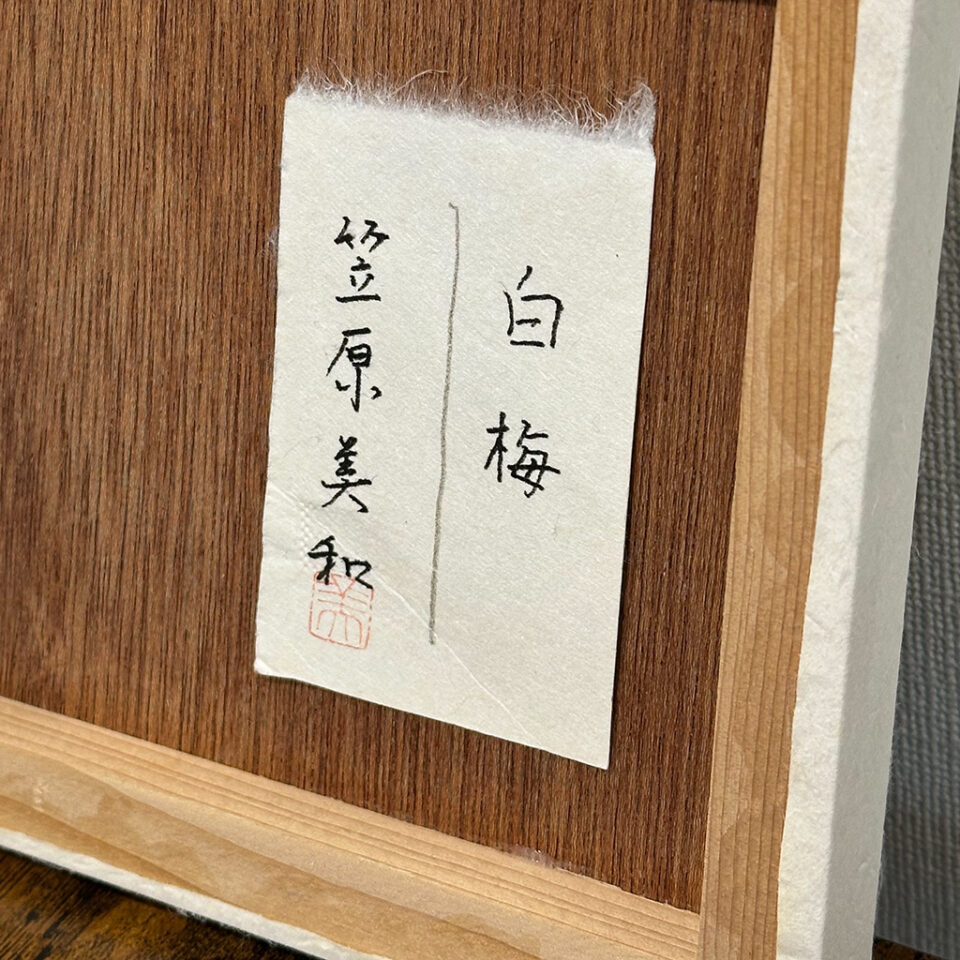 白梅
笠原美和